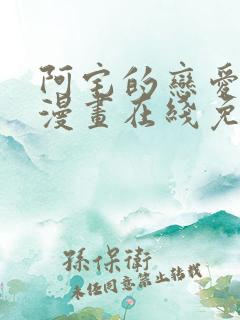 阿宅的戀愛
漫畫在綫免
孫保衛
未经同意禁止转载